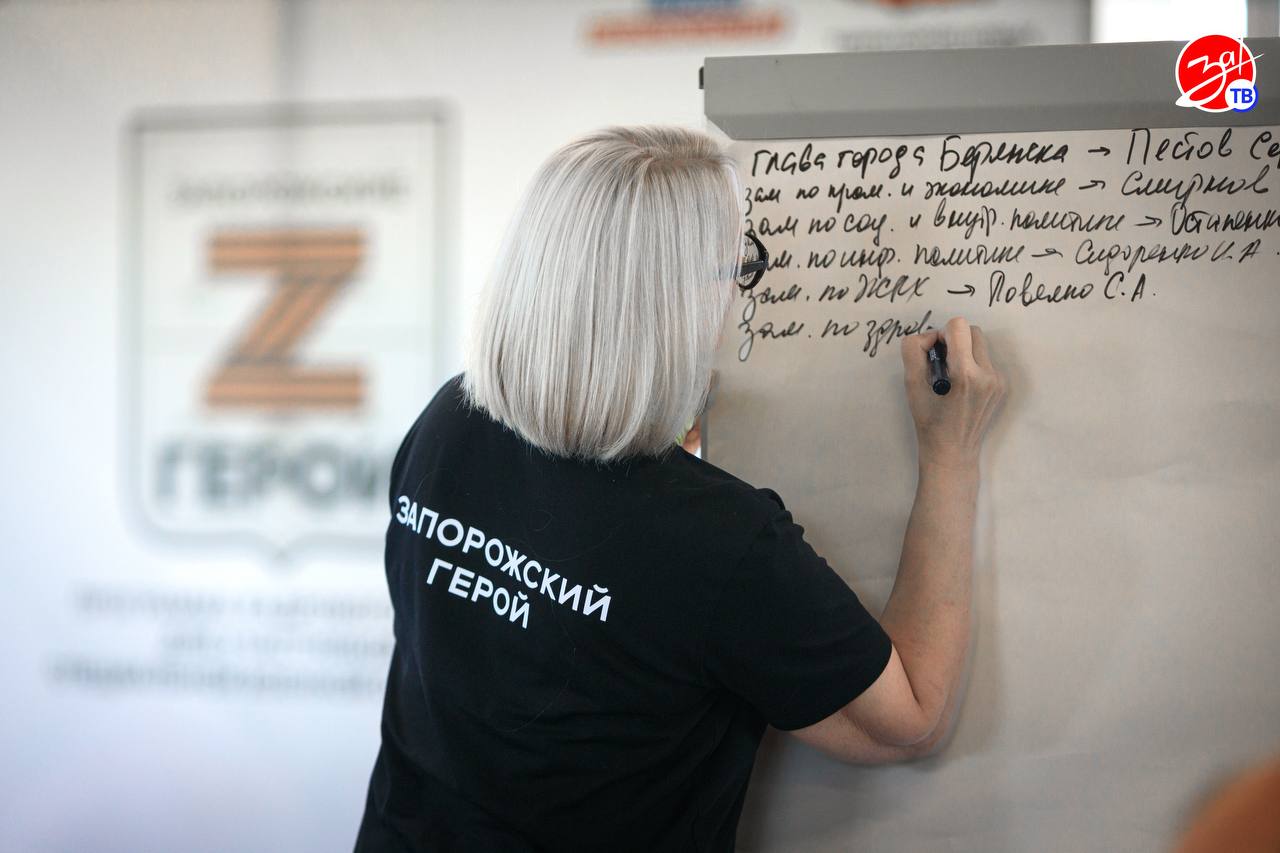 Z
ГЕРОЙ
За!
ТВ
глава города Бердянска → Пестов Се
зам по пром. и экономике → Смирнов
зам по соц. и внутр. политике → Остапенко
зам. по инф. политике → Сидоренко И. А.
зам. по ЖКХ → Повелко С.А.
зам. по здрав
ЗАПОРОЖСКИЙ
ГЕРОЙ